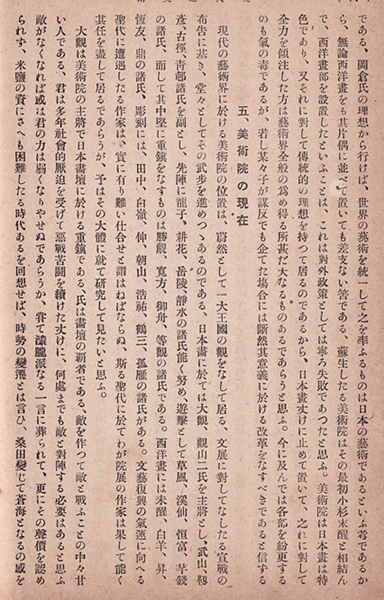 である。岡倉氏の理想から行けば、世界の藝術を統一して之を率ふるものは日本の藝術であるといふ考であるか
ら、無論西洋畫をも生片偶に並べて置いても差支ない筈である。蘇生したる美術院はその最初小杉未醒と相結ん
で、西洋畫部を設置したといふことは、これは對外政策としては寧ろ失敗であつたと思ふ。美術院は日本畫は特
色であり、又それに對して傳統的の理想を持つて居るのであるから、日本畫丈けに止めて置いて、之れに對して
全力を傾注した方は藝術界全般の爲め得る所甚だ大なるものあるであらうと思ふ。今に及んでは各部を紛更する
のも氣の毒であるが、若し某々子が謀反でも企てた塲合には斷然其意義に於ける改革をなすべきであると信する
五、美術院の現在
現代の藝術界に於ける美術院の位置は、蔚然として一大王國の觀をなして居る、文展に對してなしたる宣戰の
布吿に基き、堂々としてその武步を進めつゝあるのである、日本畫に於ては大觀、觀山二氏を主將とし、武山、
彥、古徑、靑邨諸氏を副とし、先陣に龍子、耕花、岳陵、靜水の諸氏能く努め、遊擊として草風、溪仙、恒富、芋錢
の諸氏、而して其中堅に重鎭をなすものは勝觀、寬方、御舟、等觀の諸氏である。西洋畫には未醒、白羊、昇、
恆友、鼎の諸氏、彫刻には、田中、白嶺、伸、朝山、浩祐、鶴三、孤雁の諸氏がある。文藝復興の氣運に向へる
聖代に遭遇したる作家は、實に有り難い仕合せと謂はねばならぬ、斯る聖代に於てわが院展の作家は果して能く
其任を盡して居るであらうか、予はその大體に就て硏究して見たいと思ふ。
大觀は美術院の主將で日本畫壇に於ける重鎭である、氏は畫壇の覇者である。敵を作つて敵と戰ふことの中々甘
い人である、君は多年社會的厭迫を受けて惡戰苦鬪を續けた丈けに、何處までも敵と對陣する必要はあると思ふ
敵がなくなれば或は君の力は弱くなりやせぬであらうか、嘗て濛朧派なる一言に葬られて、更にその聲價を認め
られず、米鹽の資にさへも困難したる時代あるを回想せば、時勢の變遷とは言ひ、桑田變じて蒼海となるの感を